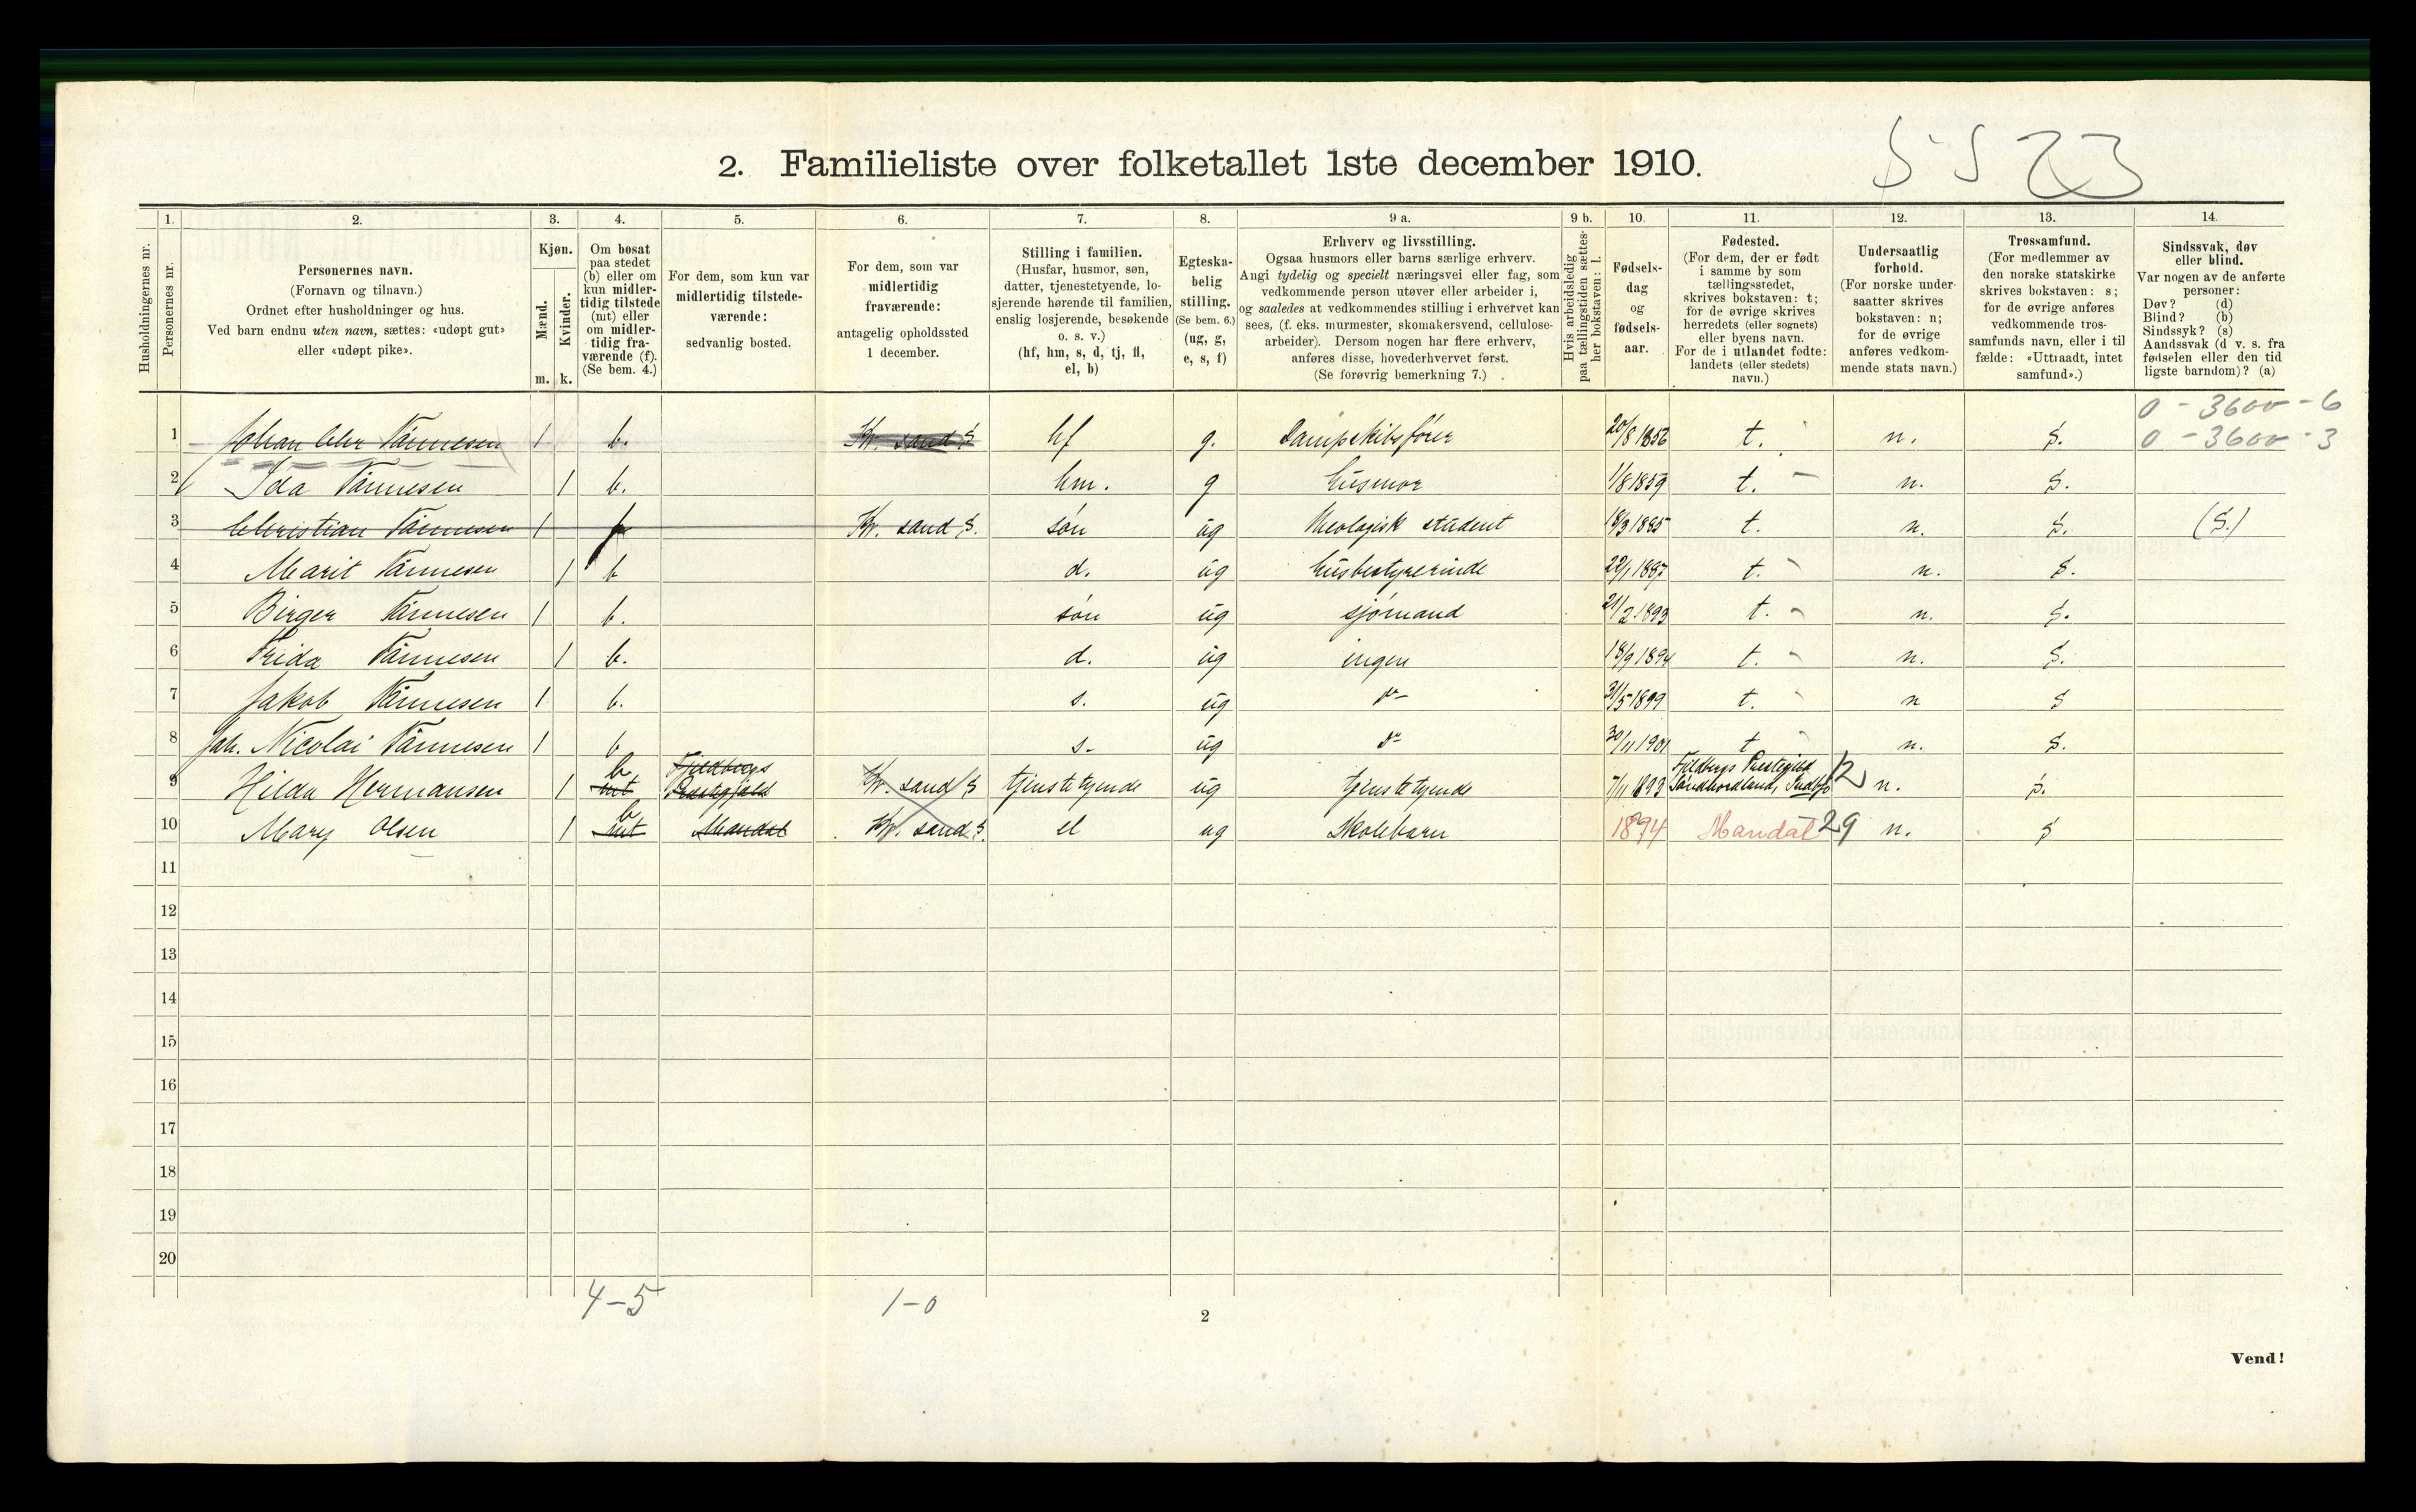 2. Familieliste over folketallet 1ste december 1910.
Husholdningernes nr.
1.
Personernes nr.
2.
Personernes navn.
(Fornavn og tilnavn.)
Ordnet efter husholdninger og hus.
Ved barn endnu uten navn, sættes: «udøpt gut»
eller «udøpt pike».
3.
Kjøn.
Mænd.
Kvinder.
m. k.
4.
Om bosat
paa stedet
(b) eller om
kun midler-
tidig tilstede
(mt) eller
om midler-
tidig fra-
værende (f).
(Se bem. 4.)
5.
For dem, som kun var
midlertidig tilstede-
værende:
sedvanlig bosted.
6.
For dem, som var
midlertidig
fraværende:
antagelig opholdssted
1 december.
7.
Stilling i familien.
(Husfar, husmor, søn,
datter, tjenestetyende, lo-
sjerende hørende til familien,
enslig losjerende, besøkende
o. s. v.)
(hf, hm, s, d, tj, fl,
el, b)
8.
Egteska-
belig
stilling.
(Se bem. 6.)
(ug, g,
e, s, f)
9 a.
Erhverv og livsstilling.
Ogsaa husmors eller barns særlige erhverv.
Angi tydelig og specielt næringsvei eller fag, som
vedkommende person utøver eller arbeider i,
og saaledes at vedkommendes stilling i erhvervet kan
sees, (f. eks. murmester, skomakersvend, cellulose-
arbeider). Dersom nogen har flere erhverv,
anføres disse, hovederhvervet først.
(Se forøvrig bemerkning 7.)
9 b.
Hvis arbeidsledig
paa tællingstiden sættes
her bokstaven: l.
10.
Fødsels-
dag
og
fødsels-
aar.
11.
Fødested.
(For dem, der er født
i samme by som
tællingsstedet,
skrives bokstaven: t;
for de øvrige skrives
herredets (eller sognets)
eller byens navn.
For de i utlandet fødte:
landets (eller stedets)
navn.)
12.
Undersaatlig
forhold.
(For norske under-
saatter skrives
bokstaven: n;
for de øvrige
anføres vedkom-
mende stats navn.)
13.
Trossamfund.
(For medlemmer av
den norske statskirke
skrives bokstaven: s;
for de øvrige anføres
vedkommende tros-
samfunds navn, eller i til-
fælde: «Uttraadt, intet
samfund».)
14.
Sindssvak, døv
eller blind.
Var nogen av de anførte
personer:
Døv? (d)
Blind? (b)
Sindssyk? (s)
Aandssvak (d. v. s. fra
fødselen eller den tid-
ligste barndom)? (a)
0 - 3600 - 6
1 Johan Chr Tånnesen 1 b. Kr. sand S hf g. Dampskibsfører 20/8 1853 t. n. S. 0 - 3600 - 3
2 Ida Tånnesen 1 b. hm. g husmor 1/8 1859 t. n. S.
3 Christian Tånnesen 1 Kr. sand S. søn ug theologisk student 18/3 1885 t. n. S. (S.)
4 Marit Tånnesen 1 b d. ug husbestyrerinde 22/1 1887 t. n. S.
5 Birger Tånnesen 1 b. søn ug sjømand 21/2 1893 t. n. S.
6 Frida Tånnesen 1 b. d. ug ingen 18/9 1894 t. n. S.
7 Jakob Tånnesen 1 b. s. ug do 31/5 1899 t. n S
8 Joh. Nicolai Tånnesen 1 b s. ug do 30/11 1901 t n. S.
9 Hilda Hermansen 1 mt b Fjeldbergs Prestegjeld Kr. sand S tjenstetyende ug tjenstetyende 7/11 1893 Fjeldbergs Prestegjeld Søndhordland, 12 n. S.
10 Mary Olsen 1 mt b Mandal Kr. sand S. el ug Skolebarn 1894 Mandal 29 n. S
11
12
13
14
15
16
17
18
19
20
4-5 1-0
2
Vend!